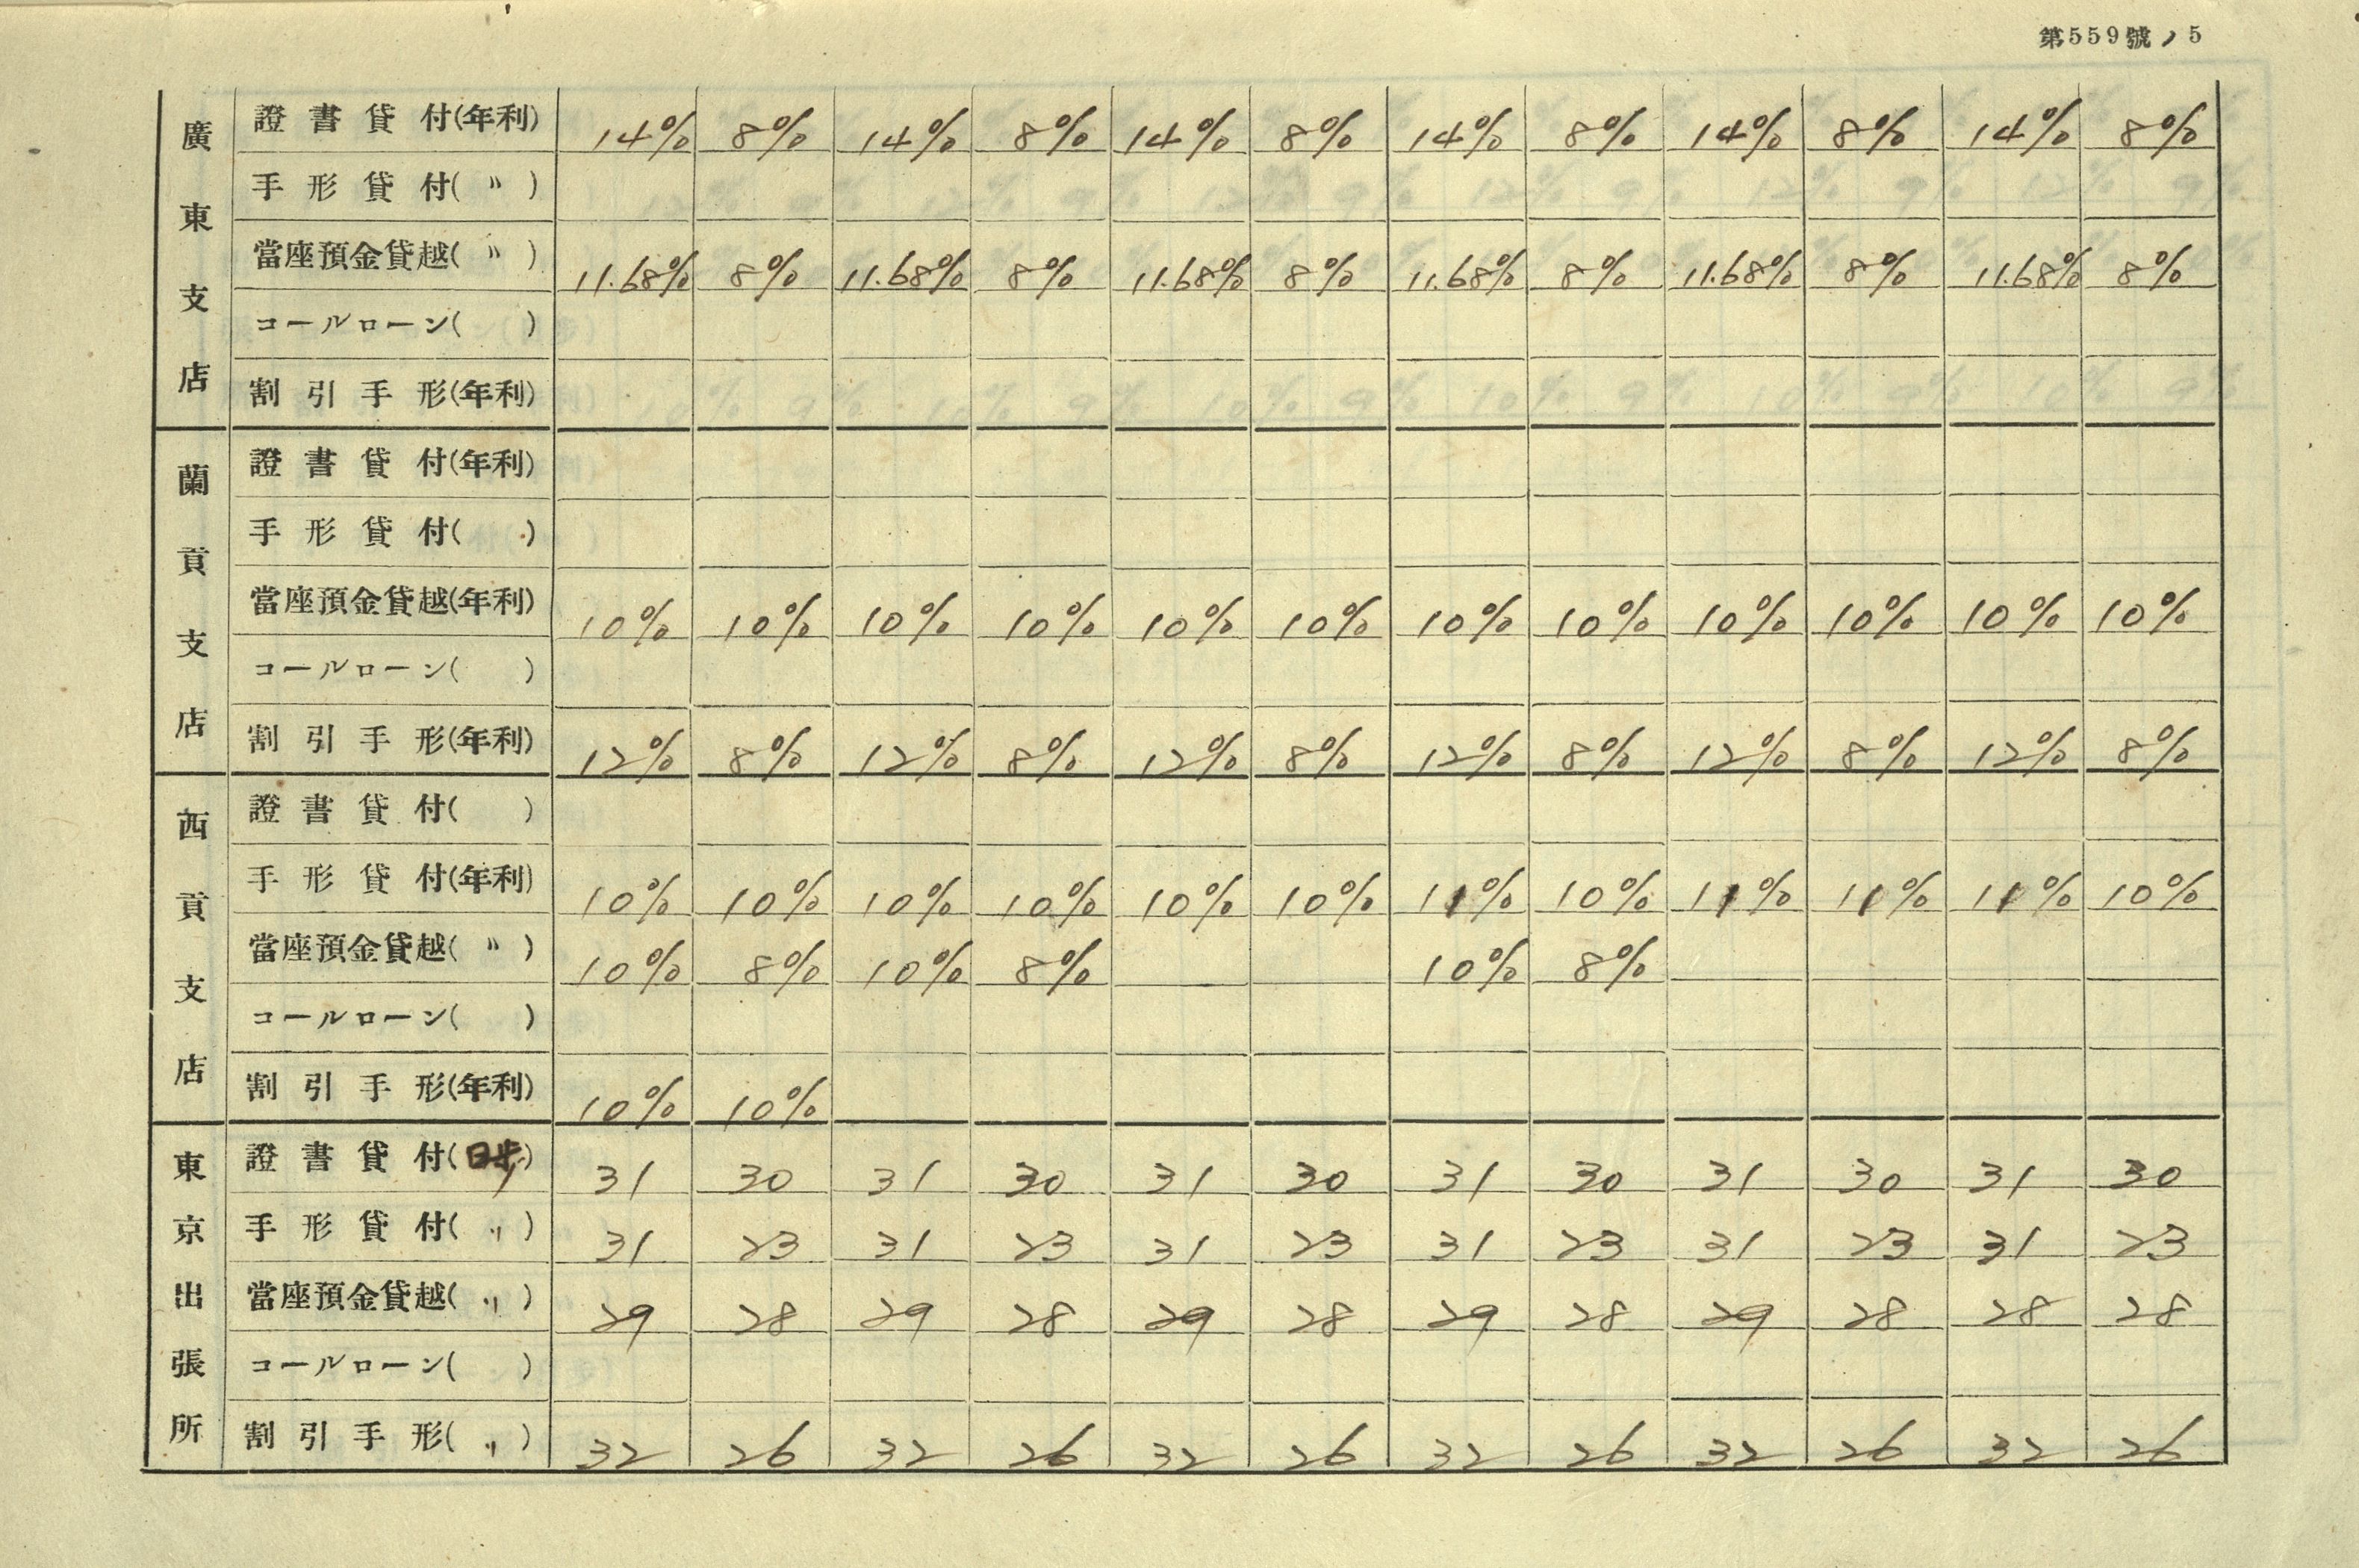 第559號ノ5
廣東支店
證書貸付(年利) 14% 8% 14% 8% 14% 8% 14% 8% 14% 8% 14% 8%
手形貸付(〃)
當座預金貸越(〃) 11.68% 8% 11.68% 8% 11.68% 8% 11.68% 8% 11.68% 8% 11.68% 8%
コールローン( )
割引手形(年利)
蘭貢支店
證書貸付(年利)
手形貸付( )
當座預金貸越(年利) 10% 10% 10% 10% 10% 10% 10% 10% 10% 10% 10% 10%
コールローン( )
割引手形(年利) 12% 8% 12% 8% 12% 8% 12% 8% 12% 8% 12% 8%
西貢支店
證書貸付( )
手形貸付(年利) 10% 10% 10% 10% 10% 10% 11% 10% 11% 11% 11% 10%
當座預金貸越(〃) 10% 8% 10% 8% 10% 8%
コールローン( )
割引手形(年利) 10% 10%
東京出張所
證書貸付(日歩) 31 30 31 30 31 30 31 30 31 30 31 30
手形貸付(〃) 31 23 31 23 31 23 31 23 31 23 31 23
當座預金貸越(〃) 29 28 29 28 29 28 29 28 29 28 28 28
コールローン( )
割引手形(〃) 32 26 32 26 32 26 32 26 32 26 32 26